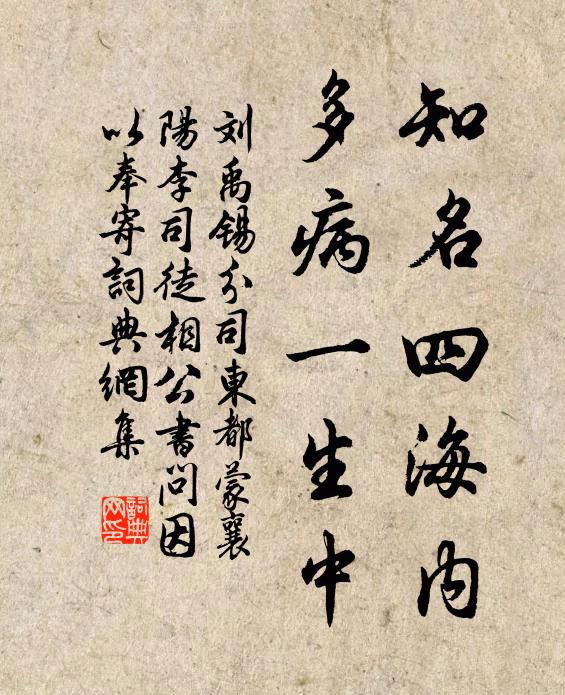 知名四海内
多病一生中
刘禹錫分司東都蒙襄
陽李司徒相公書問因
以奉寄詞典網集
詞典
网印